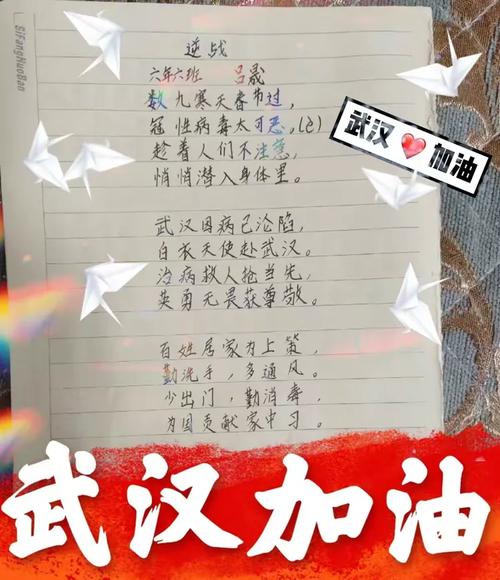 SiFangHuoBan
逆战
六年六班 吕晟
数九寒天春节过，
冠性病毒太可恶。(2)
趁着人们不注意，
悄悄潜入身体里。
武汉因病已沦陷，
白衣天使赴武汉。
治病救人抢当先，
英勇无畏获尊敬。
百姓居家为上策，
勤洗手，多通风。
少出门，勤消毒，
为国贡献家中习。
武汉加油
武汉加油